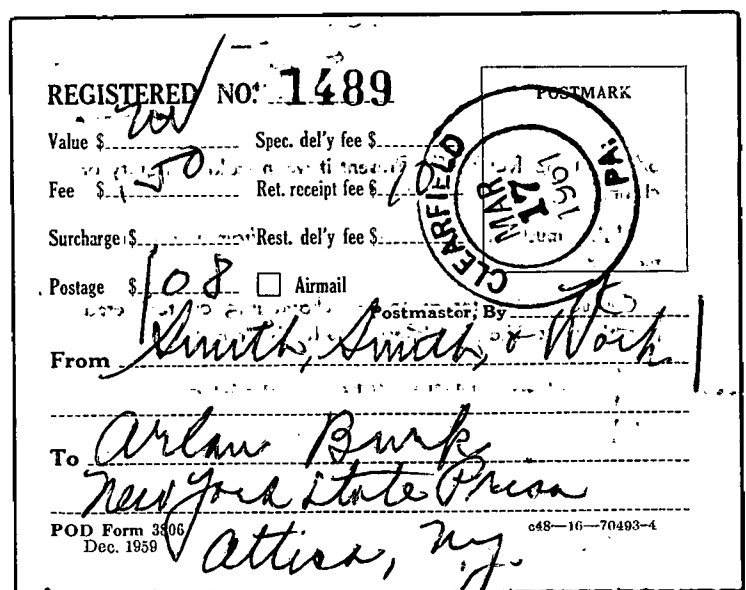 REGISTERED NO. 1489
POSTMARK
CLEARFIELD PA.
MAR 17 1961
Value $ Spec. del'y fee $
Fee $ .50 Ret. receipt fee $ 10
Surcharge $ Rest. del'y fee $
Postage $ .08 Airmail
Postmaster, By
From Smith, Smith, & Work
To Arlan Burk
New York State Prison
POD Form 3806
Dec. 1959
c48—16—70493-4
Attica, N.Y.